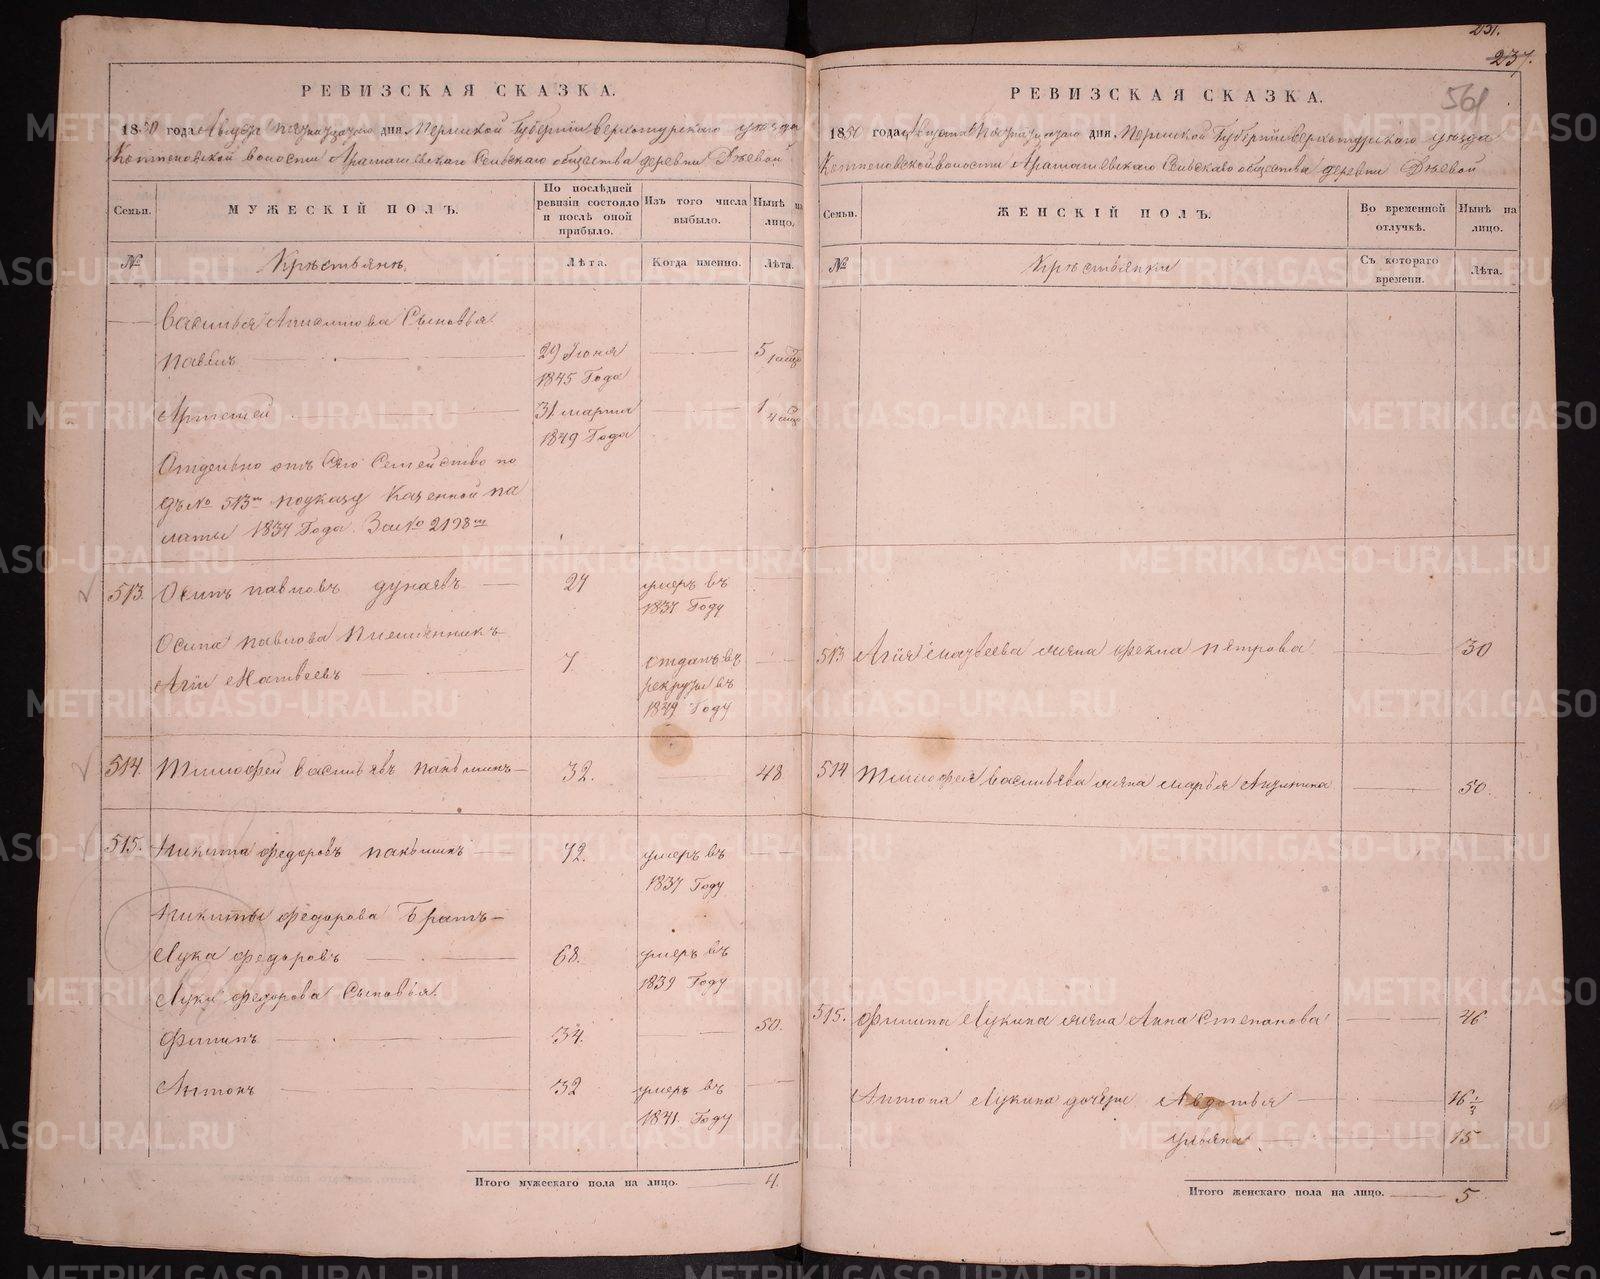 231.
237.
561
РЕВИЗСКАЯ СКАЗКА.
1850 года Августа дня Пермской Губернии Верхотурскаго уезда
волости Сельскаго общества деревни
Семьи. МУЖЕСКІЙ ПОЛЪ. По послѣдней ревизіи состояло и послѣ оной прибыло. Изъ того числа выбыло. Нынѣ на лицо.
№ Крестьяне. Лѣта. Когда именно. Лѣта.
Васильевы Сыновья
Павелъ 29 Іюня 1845 Года 5
Артемей 31 марта 1849 Года 1
Отдельно отъ Сего Семейство по
дъ № 513м Казенной па
латы 1837 Года За № 2198м
513. Осипъ Павловъ Дунаевъ 27 умеръ въ 1837 Году
Осипа Павлова Племянникъ
Матвеевъ 7. отданъ въ рекруты въ 1849 Году
514. Тимофей Васильевъ 32. 48
515. Никита Федоровъ 72. умеръ въ 1837 Году
Никиты Федорова Братъ
Лука Федоровъ 68. умеръ въ 1839 Году
Луки Федорова Сыновья
Филипъ 34. 50.
Антонъ 32 умеръ въ 1841. Году
Итого мужескаго пола на лицо. 4.
РЕВИЗСКАЯ СКАЗКА.
1850 года Августа дня Пермской Губернии Верхотурскаго уезда
волости Сельскаго общества деревни
Семьи. ЖЕНСКІЙ ПОЛЪ. Во временной отлучкѣ. Нынѣ на лицо.
№ Крестьянки Съ котораго времени. Лѣта.
513 Матвеева жена Фекла Петрова 30
514 Тимофея Васильева жена Марья 50.
515. Филипа Лукина жена Анна Степанова 46
Антона Лукина дочери Авдотья 16 1/2
Ульяна 15
Итого женскаго пола на лицо. 5
METRIKI.GASO-URAL.RU